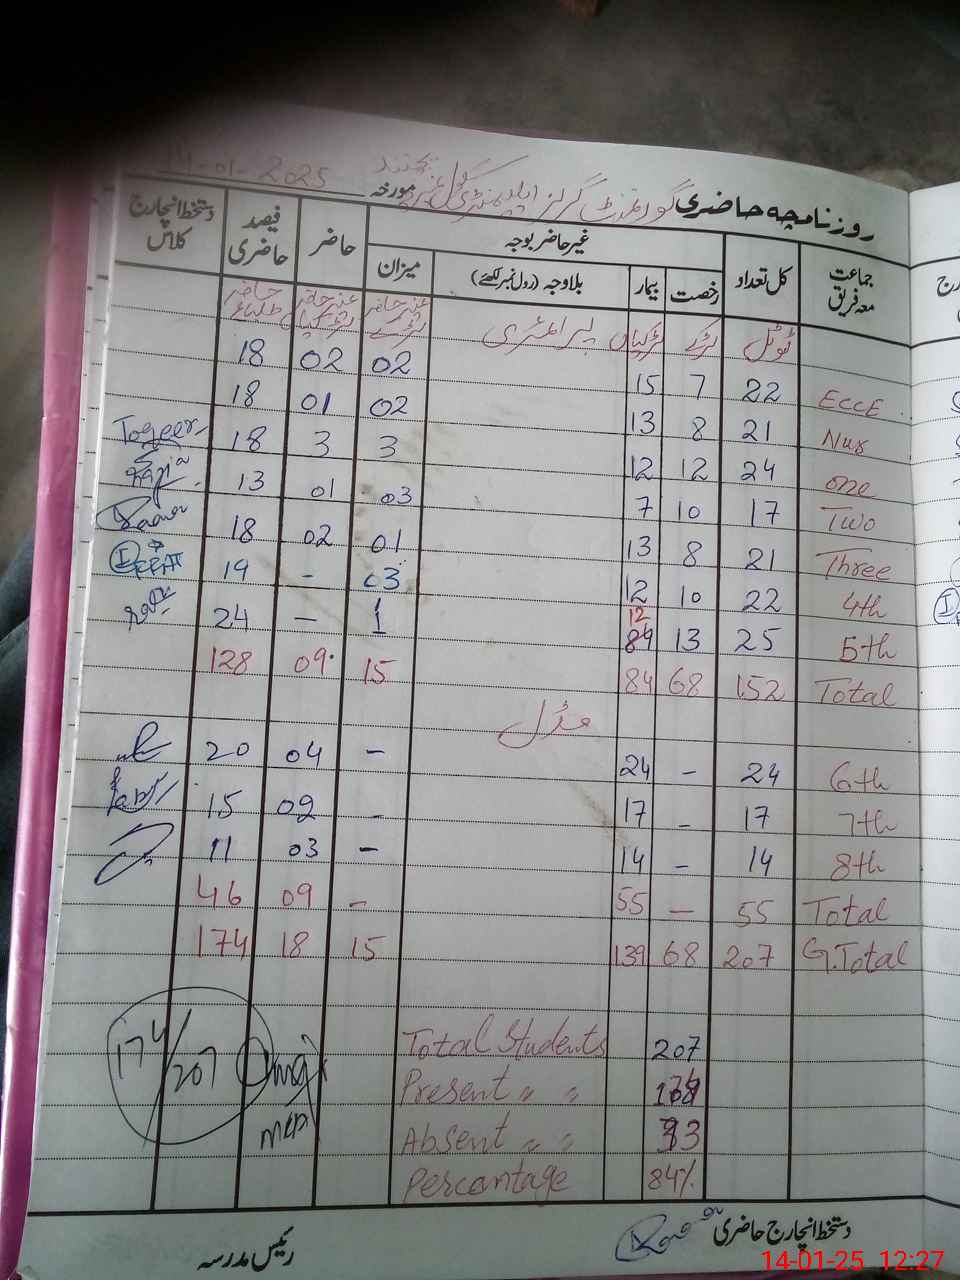 روزنامچہ حاضری گورنمنٹ گرلز ایلیمنٹری مورخہ 14-01-2025
جماعت معہ فریق کل تعداد غیر حاضر بوجہ حاضر فیصد حاضری دستخط انچارج کلاس
رخصت بیمار بلاوجہ (رول نمبر لکھئے) میزان
ٹوٹل لڑکے لڑکیاں پرائمری غیر حاضر لڑکے غیر حاضر لڑکیاں حاضر طلباء
ECCE 22 7 15 02 02 18
Nur 21 8 13 02 01 18
one 24 12 12 3 3 18 Toqeer
Two 17 10 7 03 01 13 Razia
Three 21 8 13 01 02 18
4th 22 10 12 03 - 19 IFFAT
5th 25 13 12 1 - 24
Total 152 68 84 15 09 128
مڈل
6th 24 - 24 - 04 20
7th 17 - 17 - 02 15
8th 14 - 14 - 03 11
Total 55 - 55 - 09 46
G.Total 207 68 139 15 18 174
174/207
Total Students 207
Present " " 174
Absent " " 33
Percentage 84%
دستخط انچارج حاضری
رئیس مدرسہ
14-01-25 12:27